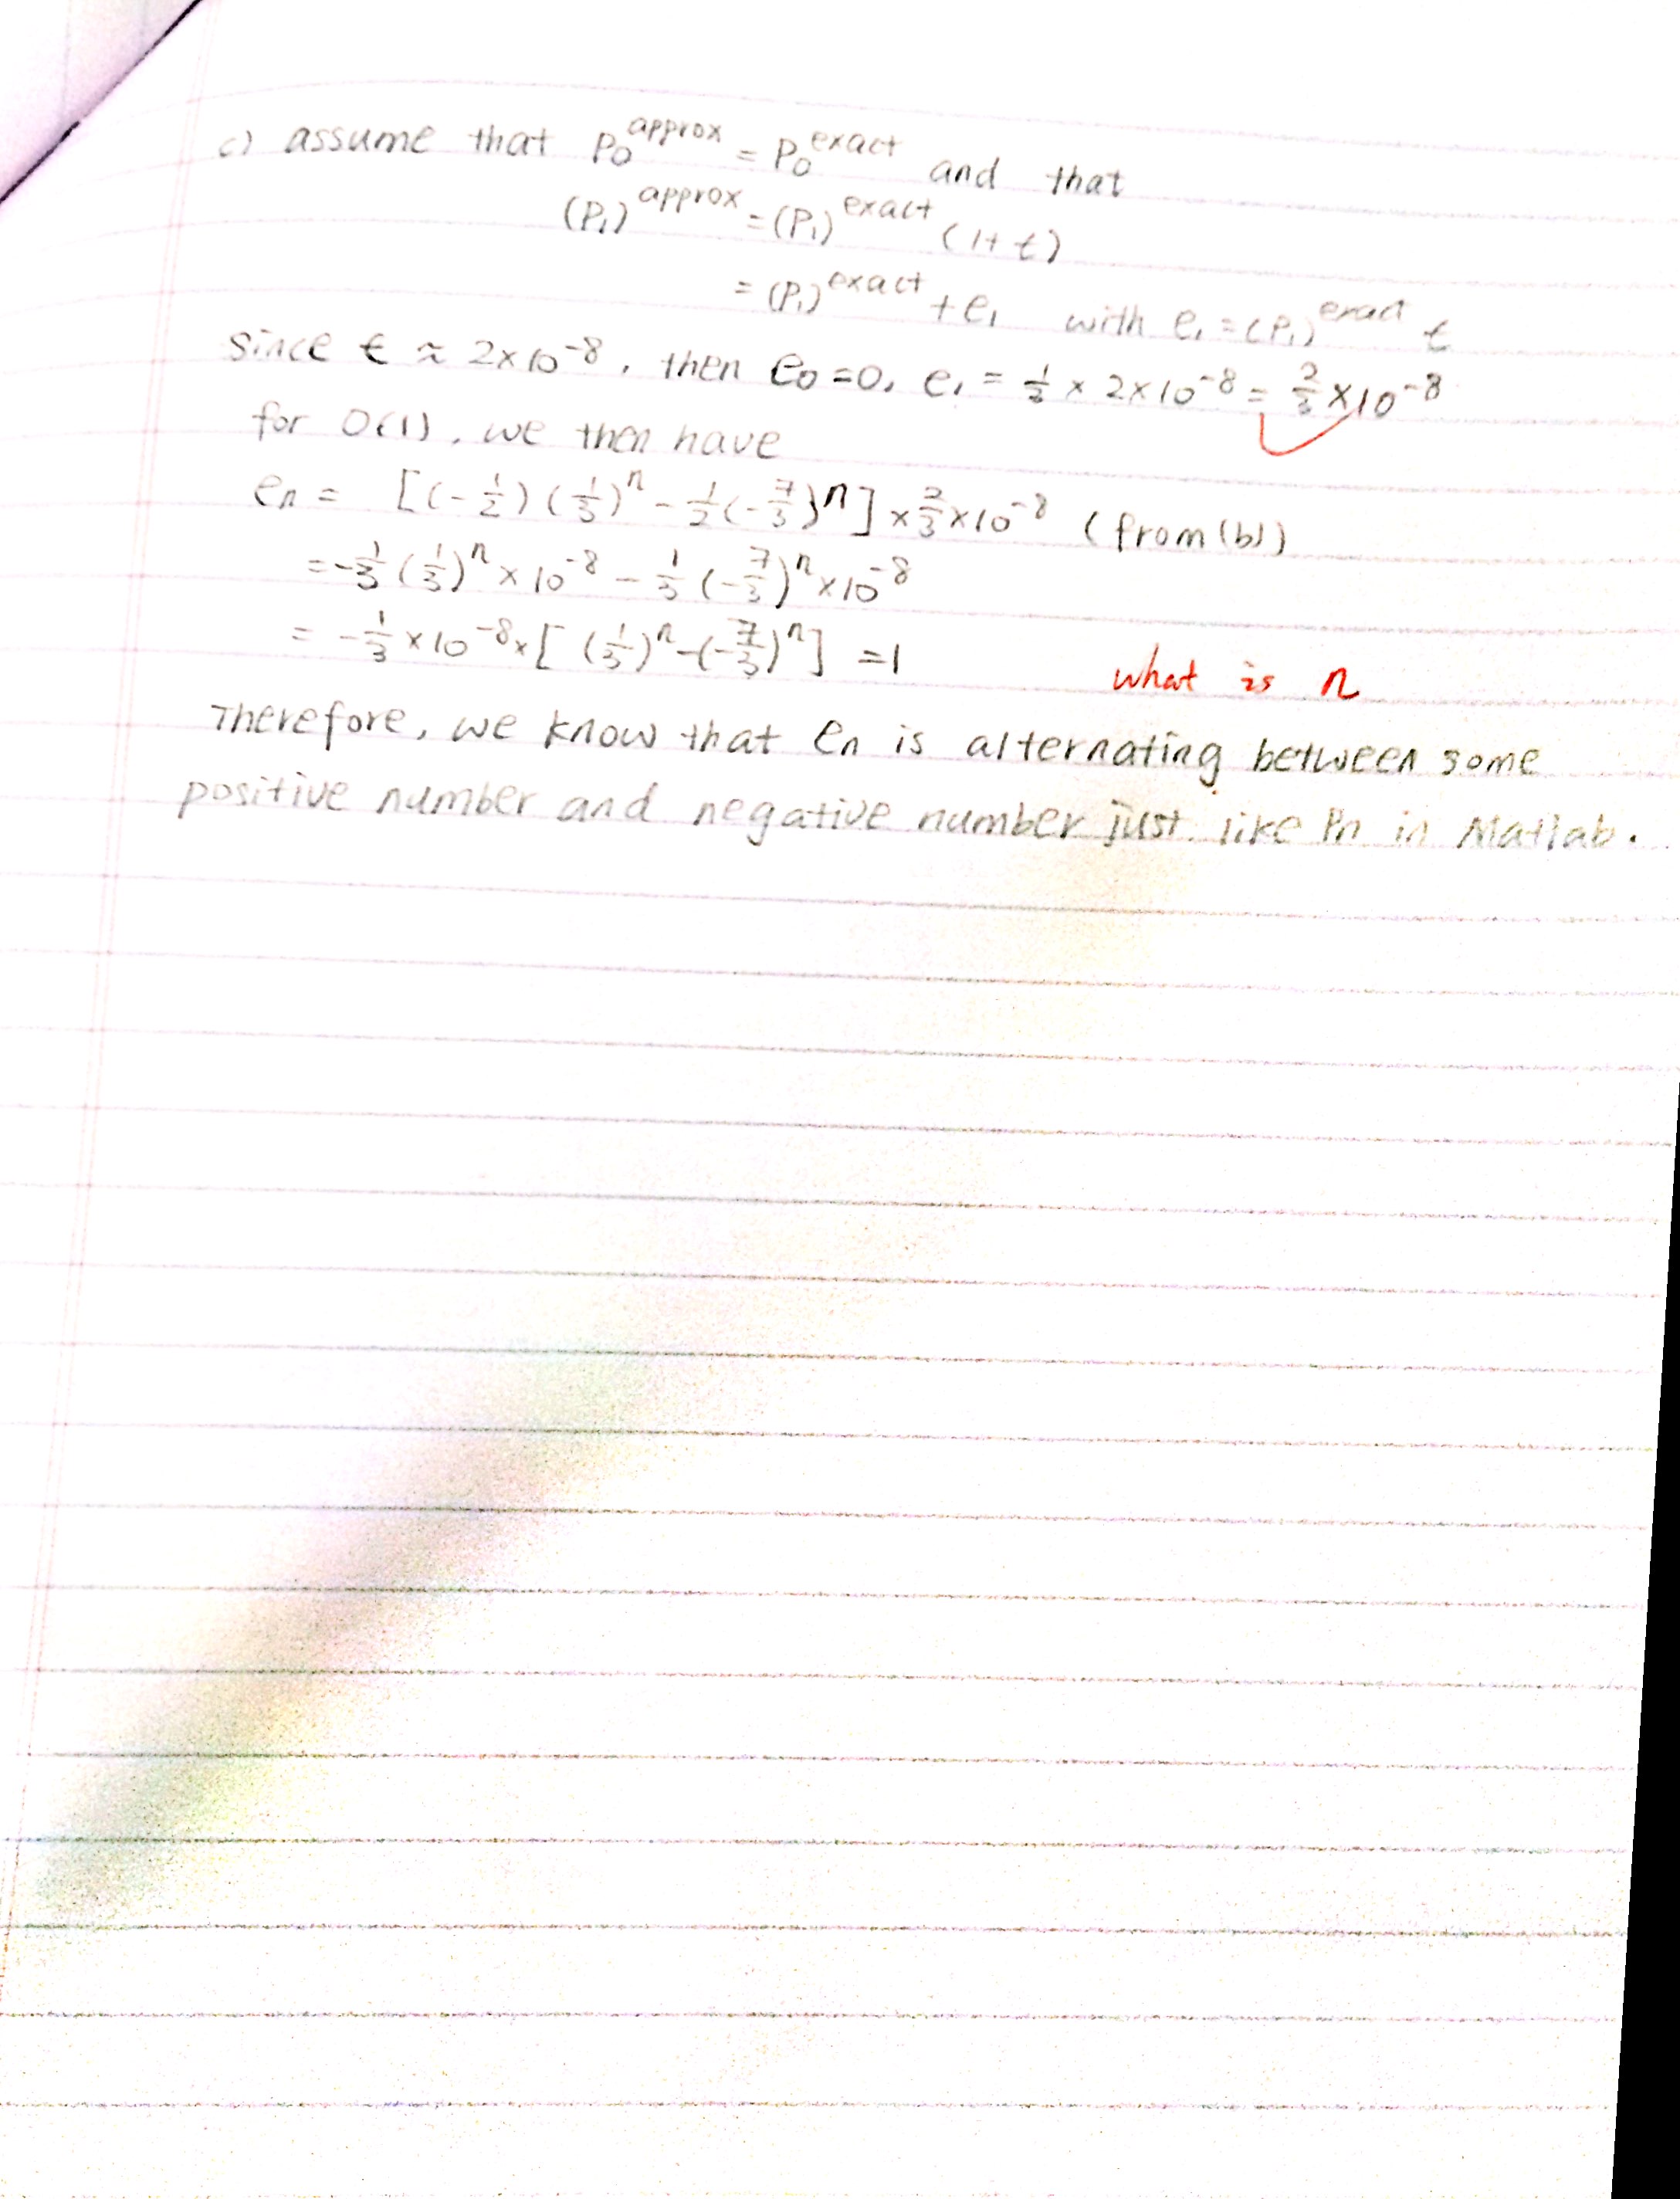 c) assume that P₀^approx = P₀^exact and that
(P₁)^approx = (P₁)^exact (1+ε)
= (P₁)^exact + e₁ with e₁ = (P₁)^exact ε
since ε ≈ 2×10^-8, then e₀=0, e₁ = 1/3 × 2×10^-8 = 2/3 ×10^-8
for O(1), we then have
eₙ = [(-1/2)(1/3)^n - 1/2(-7/3)^n] × 2/3 ×10^-8 (from (b))
= -1/3 (1/3)^n ×10^-8 - 1/3 (-7/3)^n ×10^-8
= -1/3 ×10^-8 × [(1/3)^n - (-7/3)^n] = 1
what is n
Therefore, we know that eₙ is alternating between some
positive number and negative number just like Pn in Matlab.